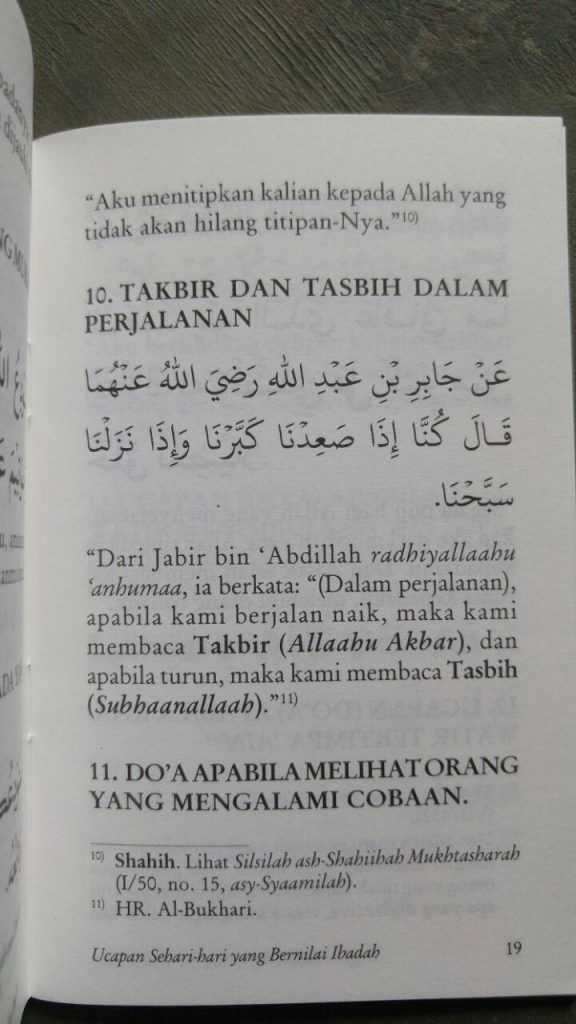 “Aku menitipkan kalian kepada Allah yang
tidak akan hilang titipan-Nya.”10)
10. TAKBIR DAN TASBIH DALAM
PERJALANAN
عَنْ جَابِرِ بْنِ عَبْدِ اللهِ رَضِيَ اللهُ عَنْهُمَا
قَالَ كُنَّا إِذَا صَعِدْنَا كَبَّرْنَا وَإِذَا نَزَلْنَا
سَبَّحْنَا.
“Dari Jabir bin ‘Abdillah radhiyallaahu
‘anhumaa, ia berkata: “(Dalam perjalanan),
apabila kami berjalan naik, maka kami
membaca Takbir (Allaahu Akbar), dan
apabila turun, maka kami membaca Tasbih
(Subhaanallaah).”11)
11. DO’A APABILA MELIHAT ORANG
YANG MENGALAMI COBAAN.
10) Shahih. Lihat Silsilah ash-Shahiihah Mukhtasharah
(I/50, no. 15, asy-Syaamilah).
11) HR. Al-Bukhari.
Ucapan Sehari-hari yang Bernilai Ibadah 19